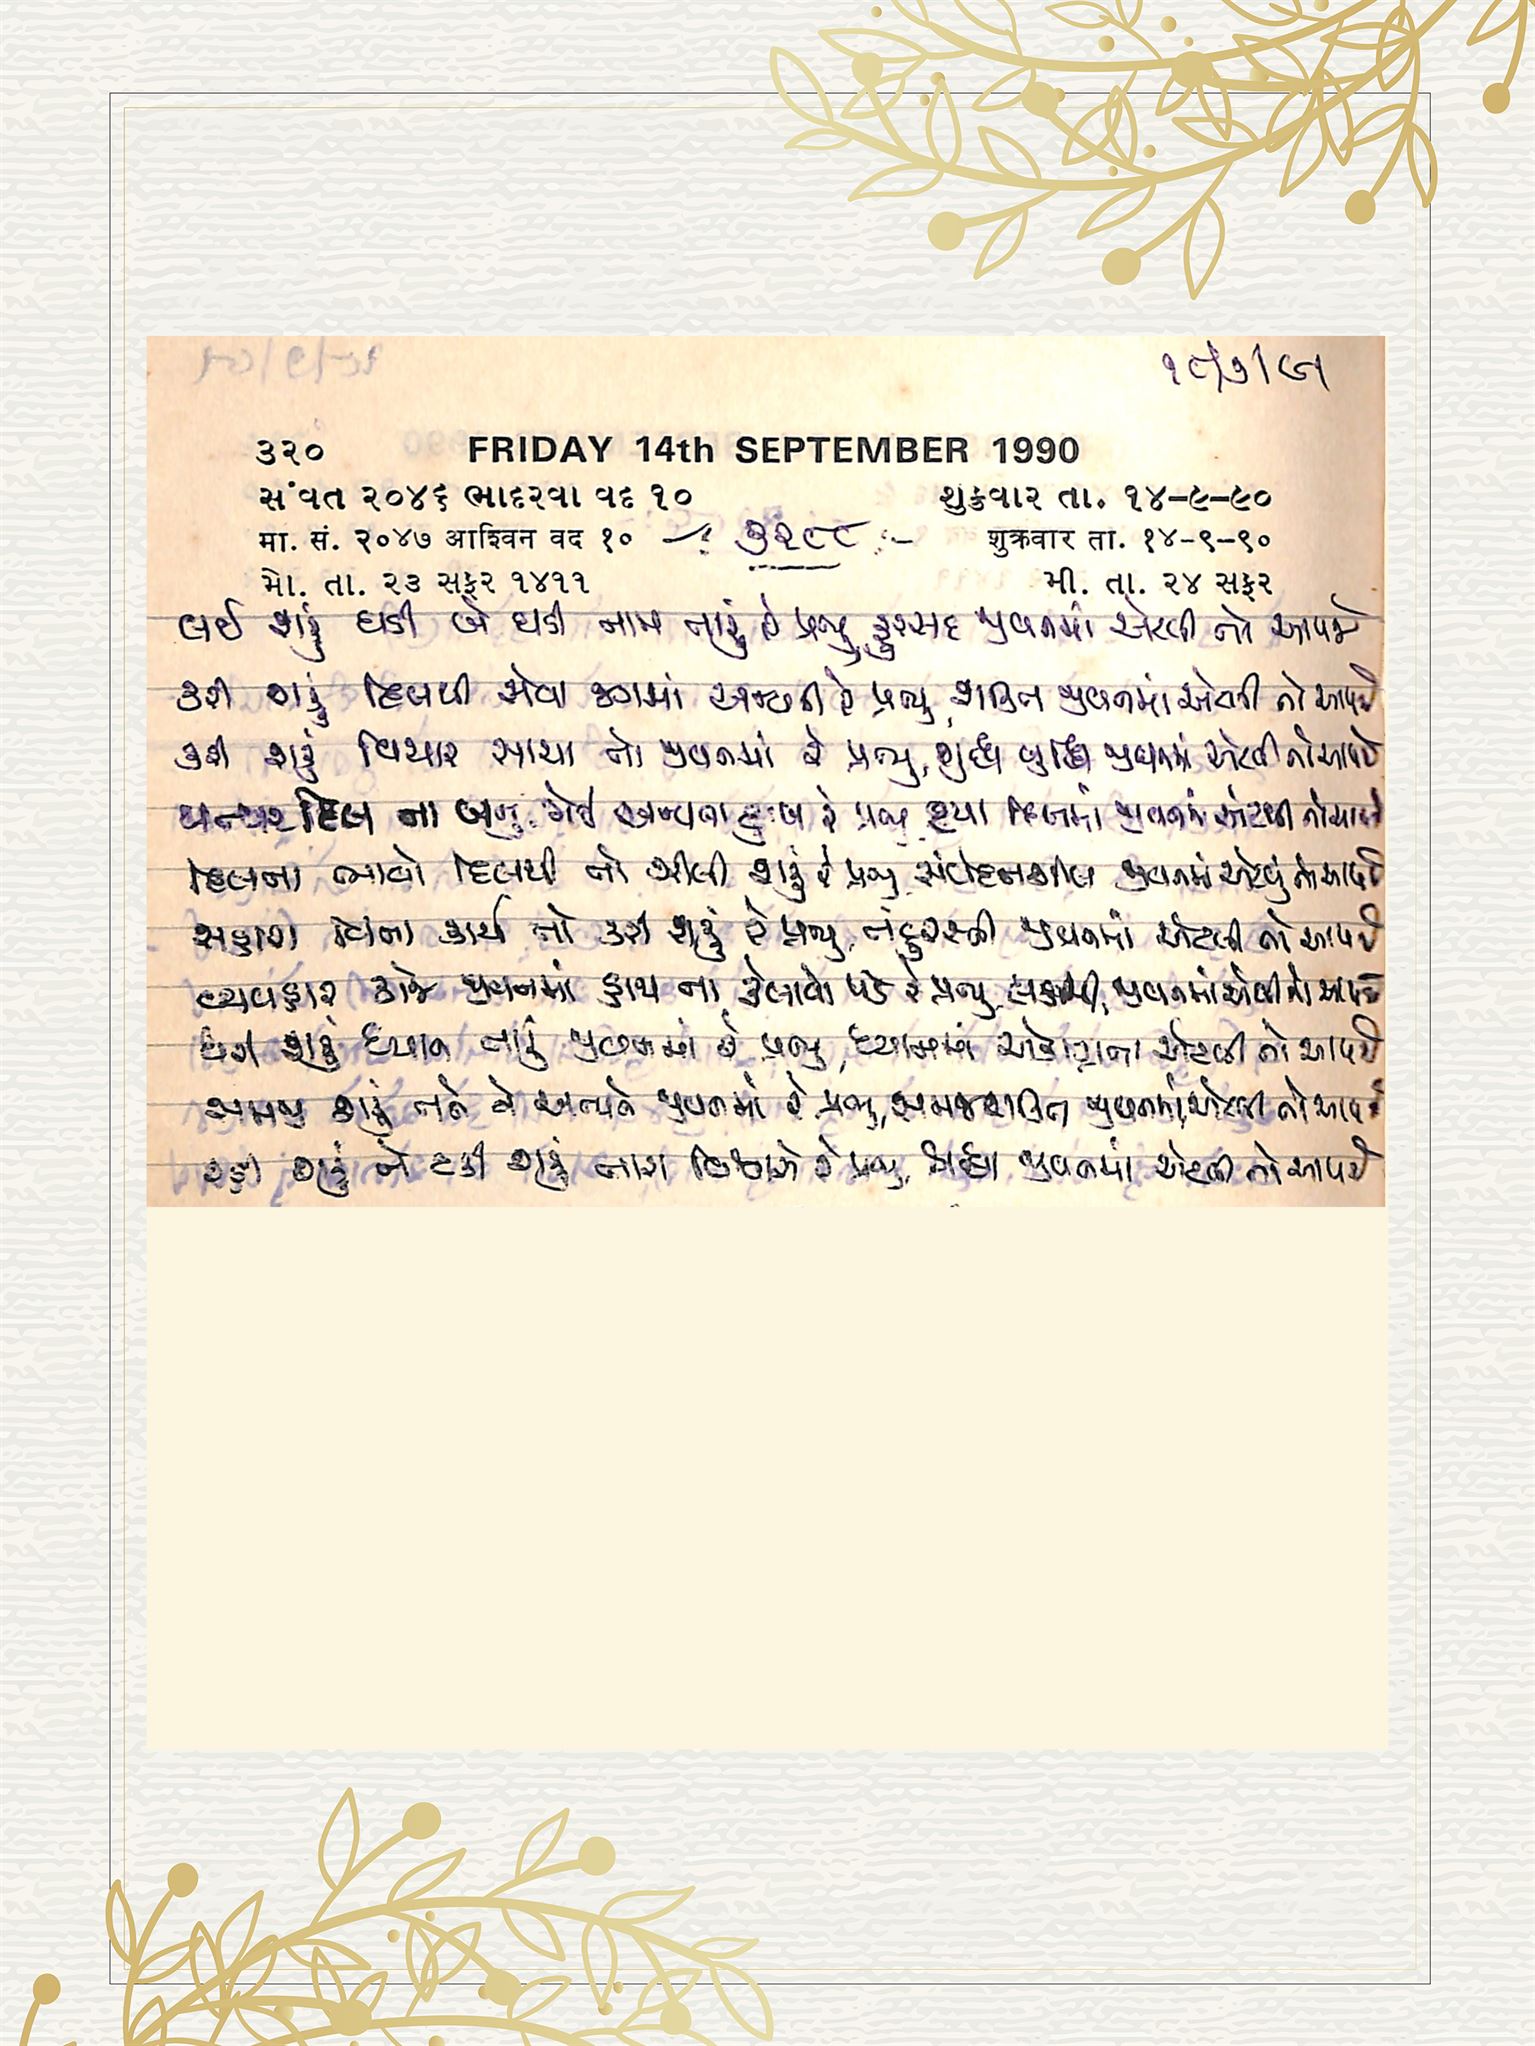 ૧૯/૭/૯૧
૩૨૦ FRIDAY 14th SEPTEMBER 1990
સંવત ૨૦૪૬ ભાદરવા વદ ૧૦ શુક્રવાર તા. ૧૪-૯-૯૦
મા. સં. ૨૦૪૭ आश्विन वद १० ૩૨૯૯ शुक्रवार ता. १४-९-९०
મો. તા. ૨૩ સફર ૧૪૧૧ મી. તા. ૨૪ સફર
લઈ શકું ઘડી બે ઘડી નામ તારું રે પ્રભુ, ફુરસદ જીવનમાં એટલી તો આપજે
કરી શકું દિલથી સેવા જગમાં અન્યની રે પ્રભુ, શક્તિ જીવનમાં એટલી તો આપજે
કરી શકું વિચાર સાચા તો જીવનમાં રે પ્રભુ, શુદ્ધ બુદ્ધિ જીવનમાં એટલી તો આપજે
પથ્થર દિલ ના બનું જોઈ અન્યના દુઃખ રે પ્રભુ, દયા દિલમાં જીવનમાં એટલી તો આપજે
દિલના ભાવો દિલથી તો ઝીલી શકું રે પ્રભુ, સંવેદનશીલ જીવનમાં એટલું તો આપજે
સહારા વિના કાર્ય તો કરી શકું રે પ્રભુ, તંદુરસ્તી જીવનમાં એટલી તો આપજે
વ્યવહાર કાજે જીવનમાં હાથ ના ફેલાવો પડે રે પ્રભુ, લક્ષ્મી જીવનમાં એટલી તો આપજે
ધરી શકું ધ્યાન તારું જીવનમાં રે પ્રભુ, ધ્યાનમાં એકાગ્રતા એટલી તો આપજે
સમજી શકું તને ને અન્યને જીવનમાં રે પ્રભુ, સમજશક્તિ જીવનમાં એટલી તો આપજે
રહી શકું ને ટકી શકું તારા વિશ્વાસે રે પ્રભુ, શ્રદ્ધા જીવનમાં એટલી તો આપજે